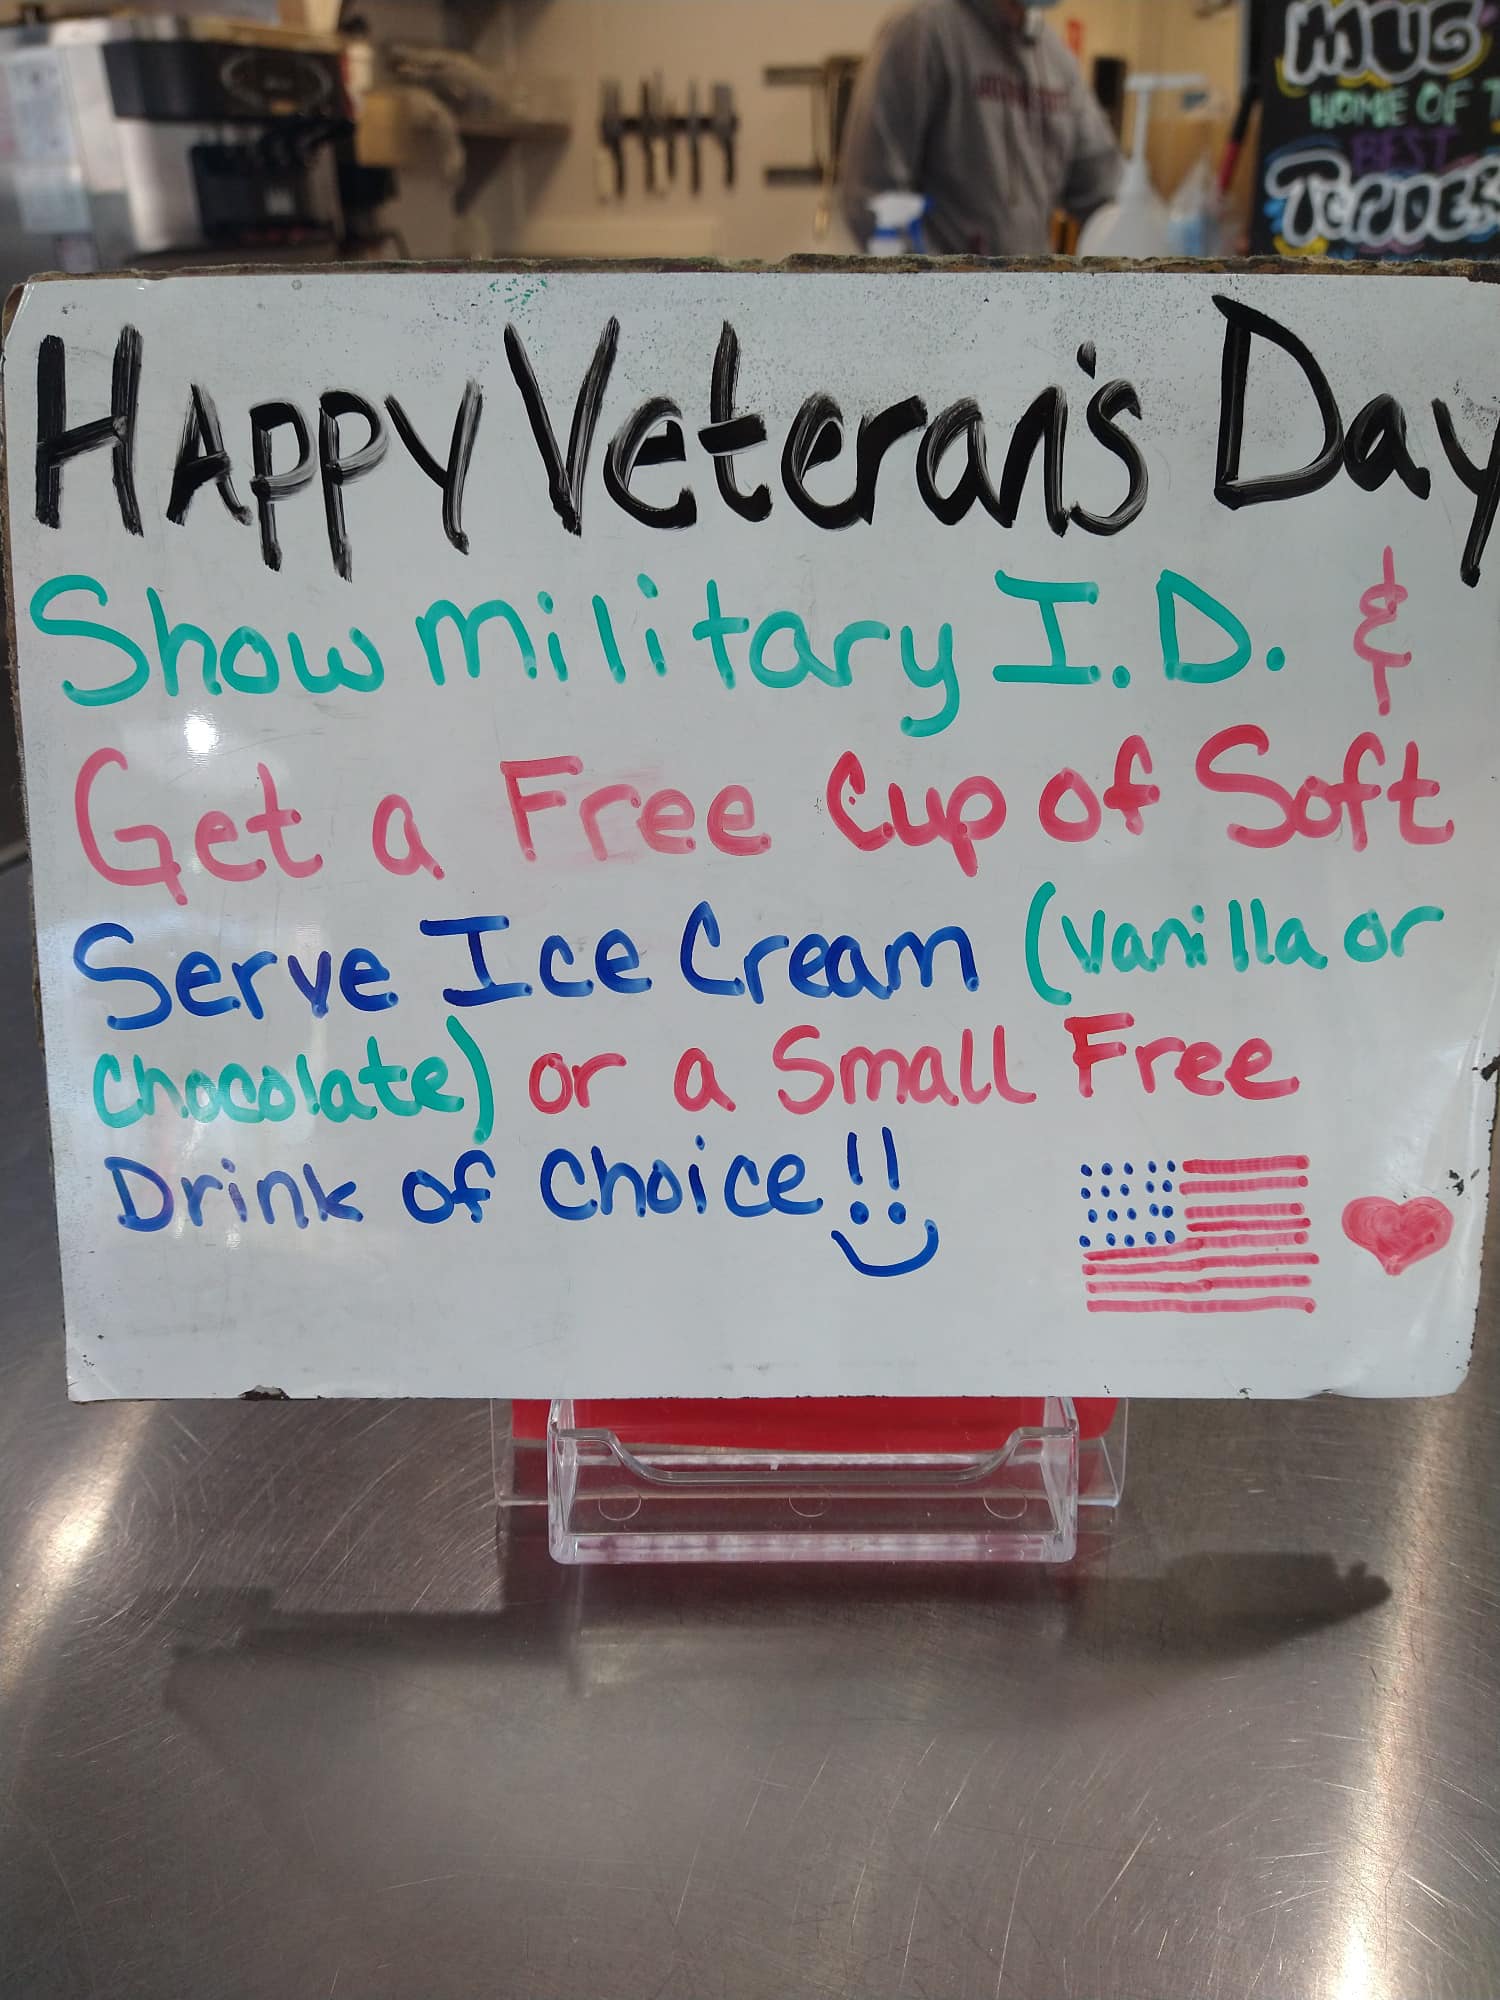 MUG
HOME OF T
BEST
Happy Veteran's Day
Show military I.D. &
Get a Free Cup of Soft
Serve Ice Cream (Vanilla or
Chocolate) or a Small Free
Drink of Choice!!